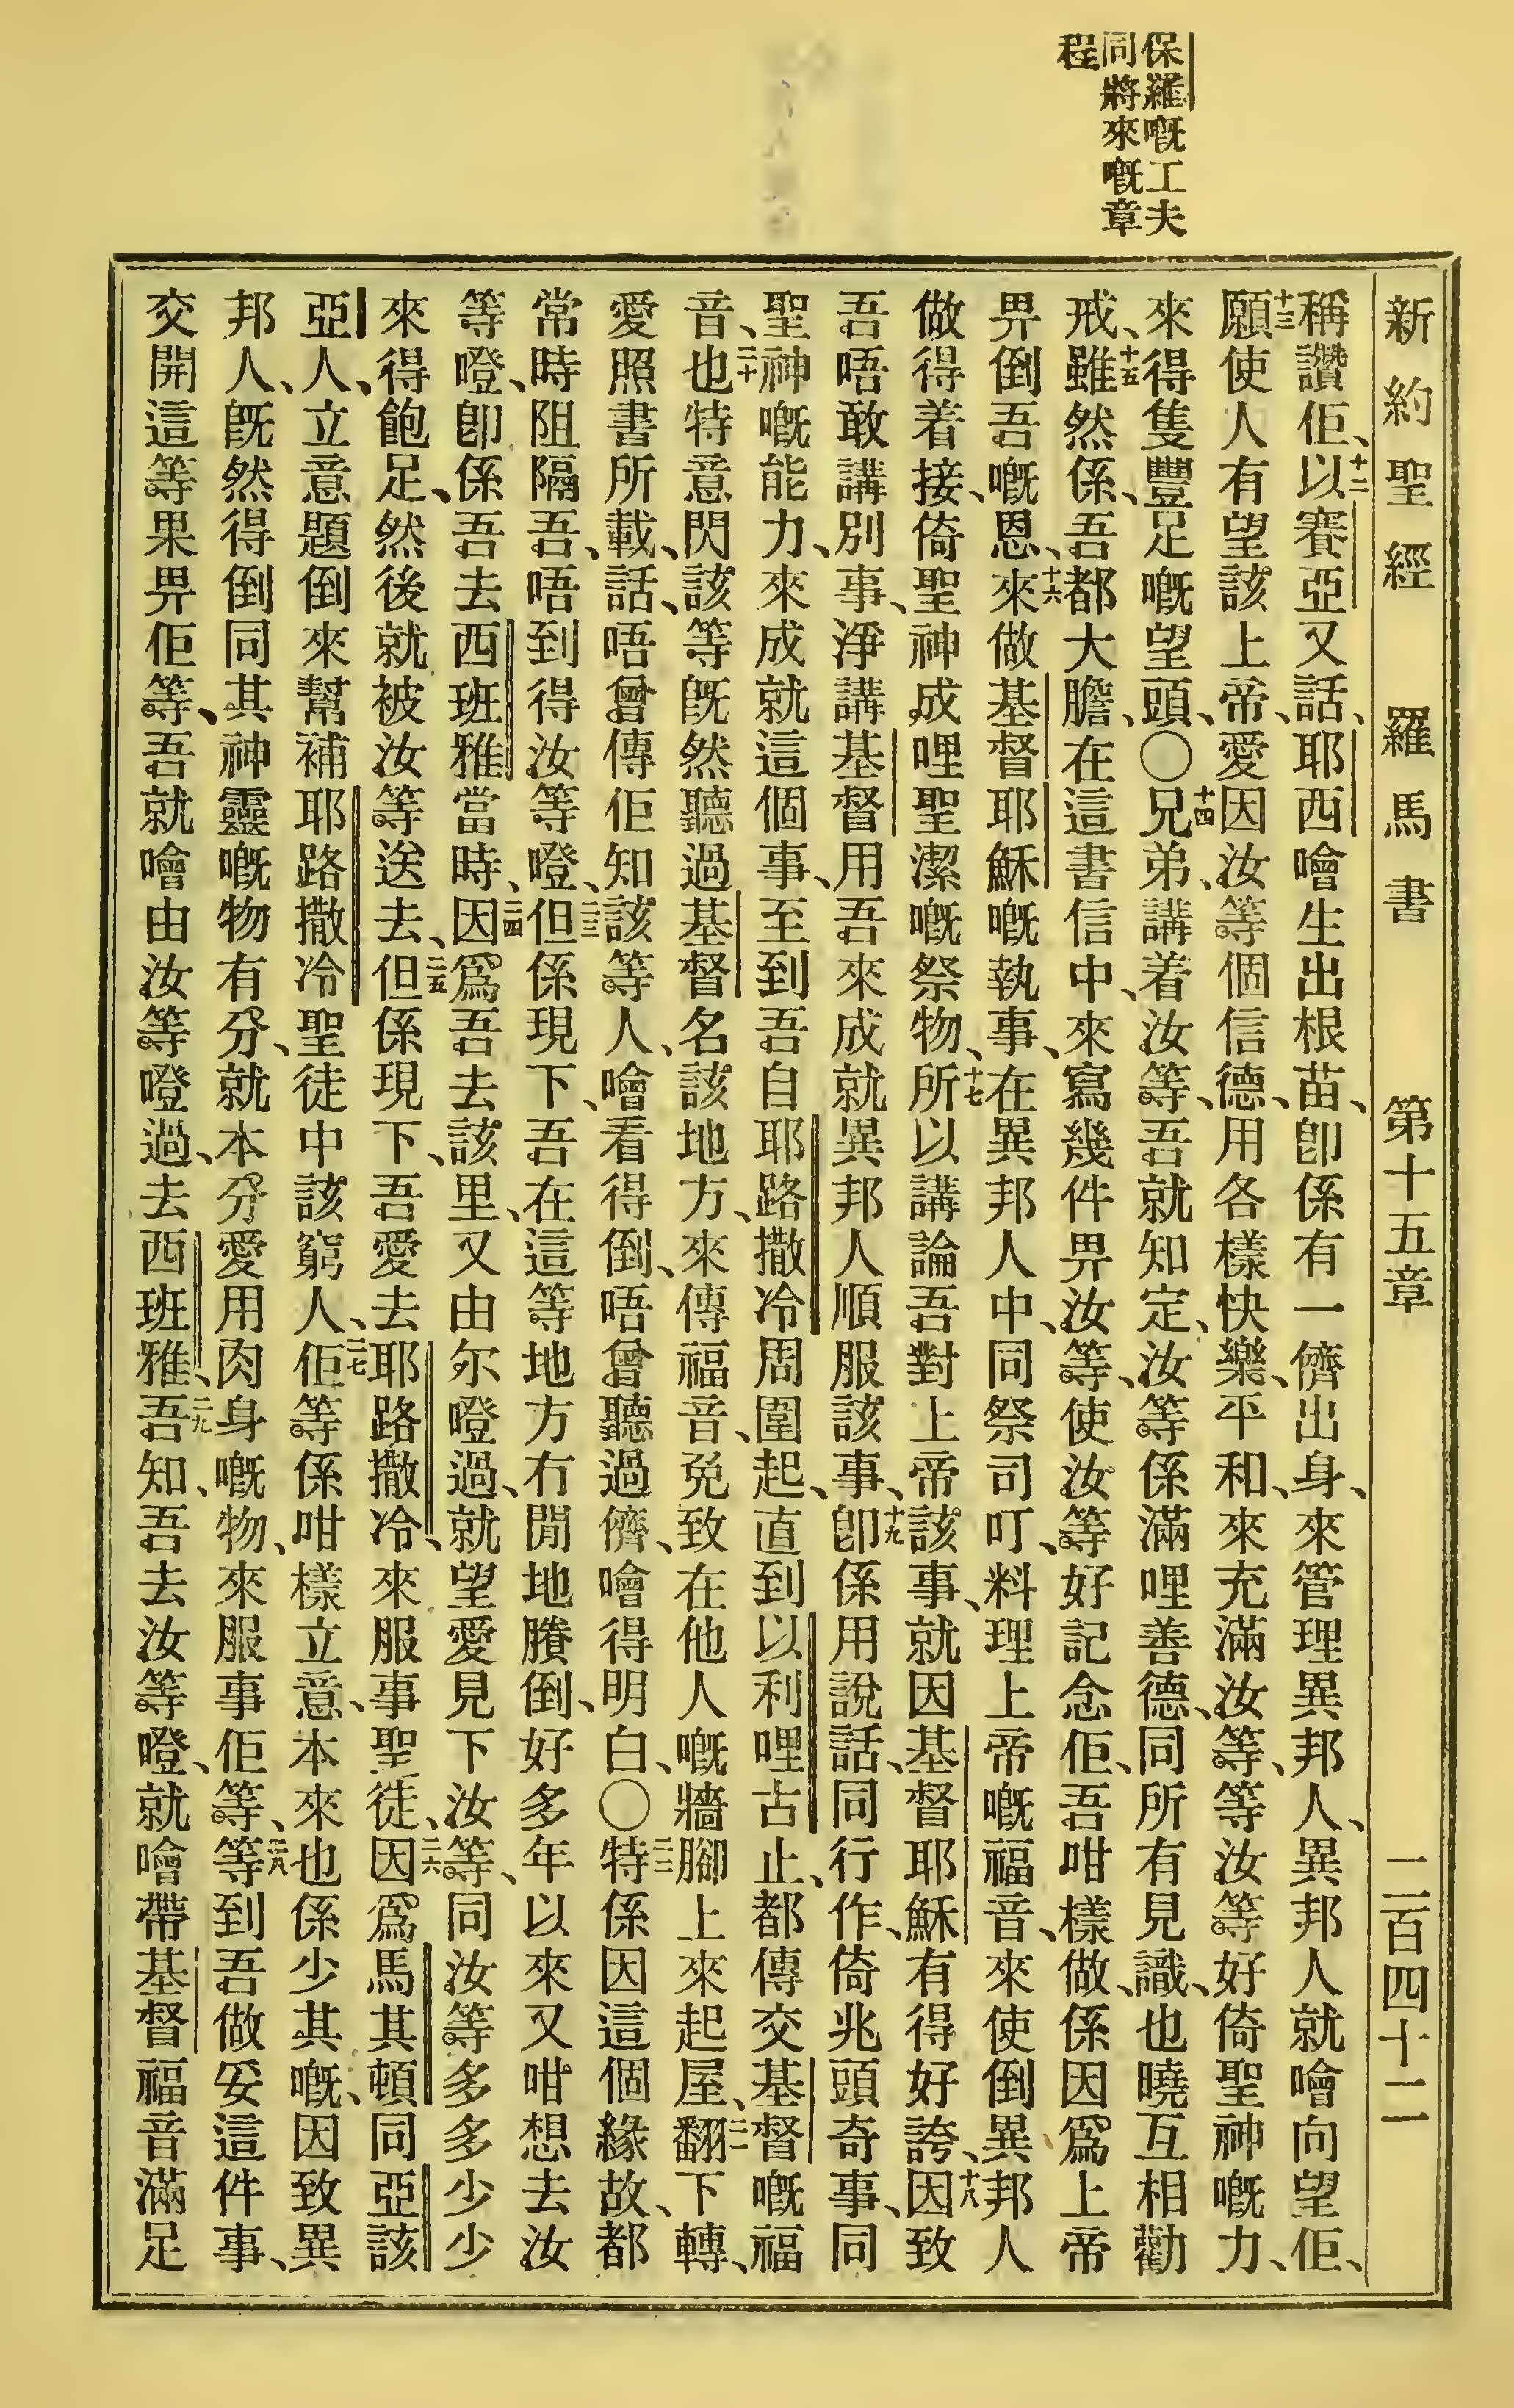 保羅嘅工夫
同將來嘅章
程
新約聖經 羅馬書 第十五章 二百四十二
稱讚佢、十二以賽亞又話、耶西噲生出根苗、卽係有一儕出身、來管理異邦人、異邦人就噲向望佢、
十三願使人有望該上帝、愛因汝等個信德、用各樣快樂、平和、來充滿汝等、等汝等好倚聖神嘅力、
來得隻豐足嘅望頭、〇十四兄弟、講着汝等、吾就知定、汝等係滿哩善德、同所有見識、也曉互相勸
戒、十五雖然係、吾都大膽、在這書信中、來寫幾件畀汝等、使汝等好記念佢、吾咁樣做、係因爲上帝
畀倒吾嘅恩、十六來做基督耶穌嘅執事、在異邦人中、同祭司叮、料理上帝嘅福音、來使倒異邦人
做得着接、倚聖神成哩聖潔嘅祭物、十七所以講論吾對上帝該事、就因基督耶穌有得好誇、十八因致
吾唔敢講別事、淨講基督用吾來成就異邦人順服該事、十九卽係用說話、同行作、倚兆頭奇事、同
聖神嘅能力、來成就這個事、至到吾自耶路撒冷周圍起、直到以利哩古止、都傳交基督嘅福
音、二十也特意閃該等旣然聽過基督名該地方、來傳福音、免致在他人嘅牆腳上來起屋、二一翻下轉、
愛照書所載、話、唔曾傳佢知該等人、噲看得倒、唔曾聽過儕、噲得明白、〇二二特係因這個緣故、都
常時阻隔吾、唔到得汝等嶝、二三但係現下、吾在這等地方冇閒地賸倒、好多年以來又咁想去汝
等嶝、卽係吾去西班雅當時、二四因爲吾去該里、又由尔嶝過、就望愛見下汝等、同汝等多多少少
來得飽足、然後就被汝等送去、二五但係現下、吾愛去耶路撒冷、來服事聖徒、二六因爲馬其頓同亞該
亞人、立意題倒來幫補耶路撒冷聖徒中該窮人、二七佢等係咁樣立意、本來也係少其嘅、因致異
邦人、旣然得倒同其神靈嘅物有分、就本分愛用肉身嘅物、來服事佢等、二八等到吾做妥這件事、
交開這等果畀佢等、吾就噲由汝等嶝過、去西班雅、二九吾知、吾去汝等嶝、就噲帶基督福音滿足